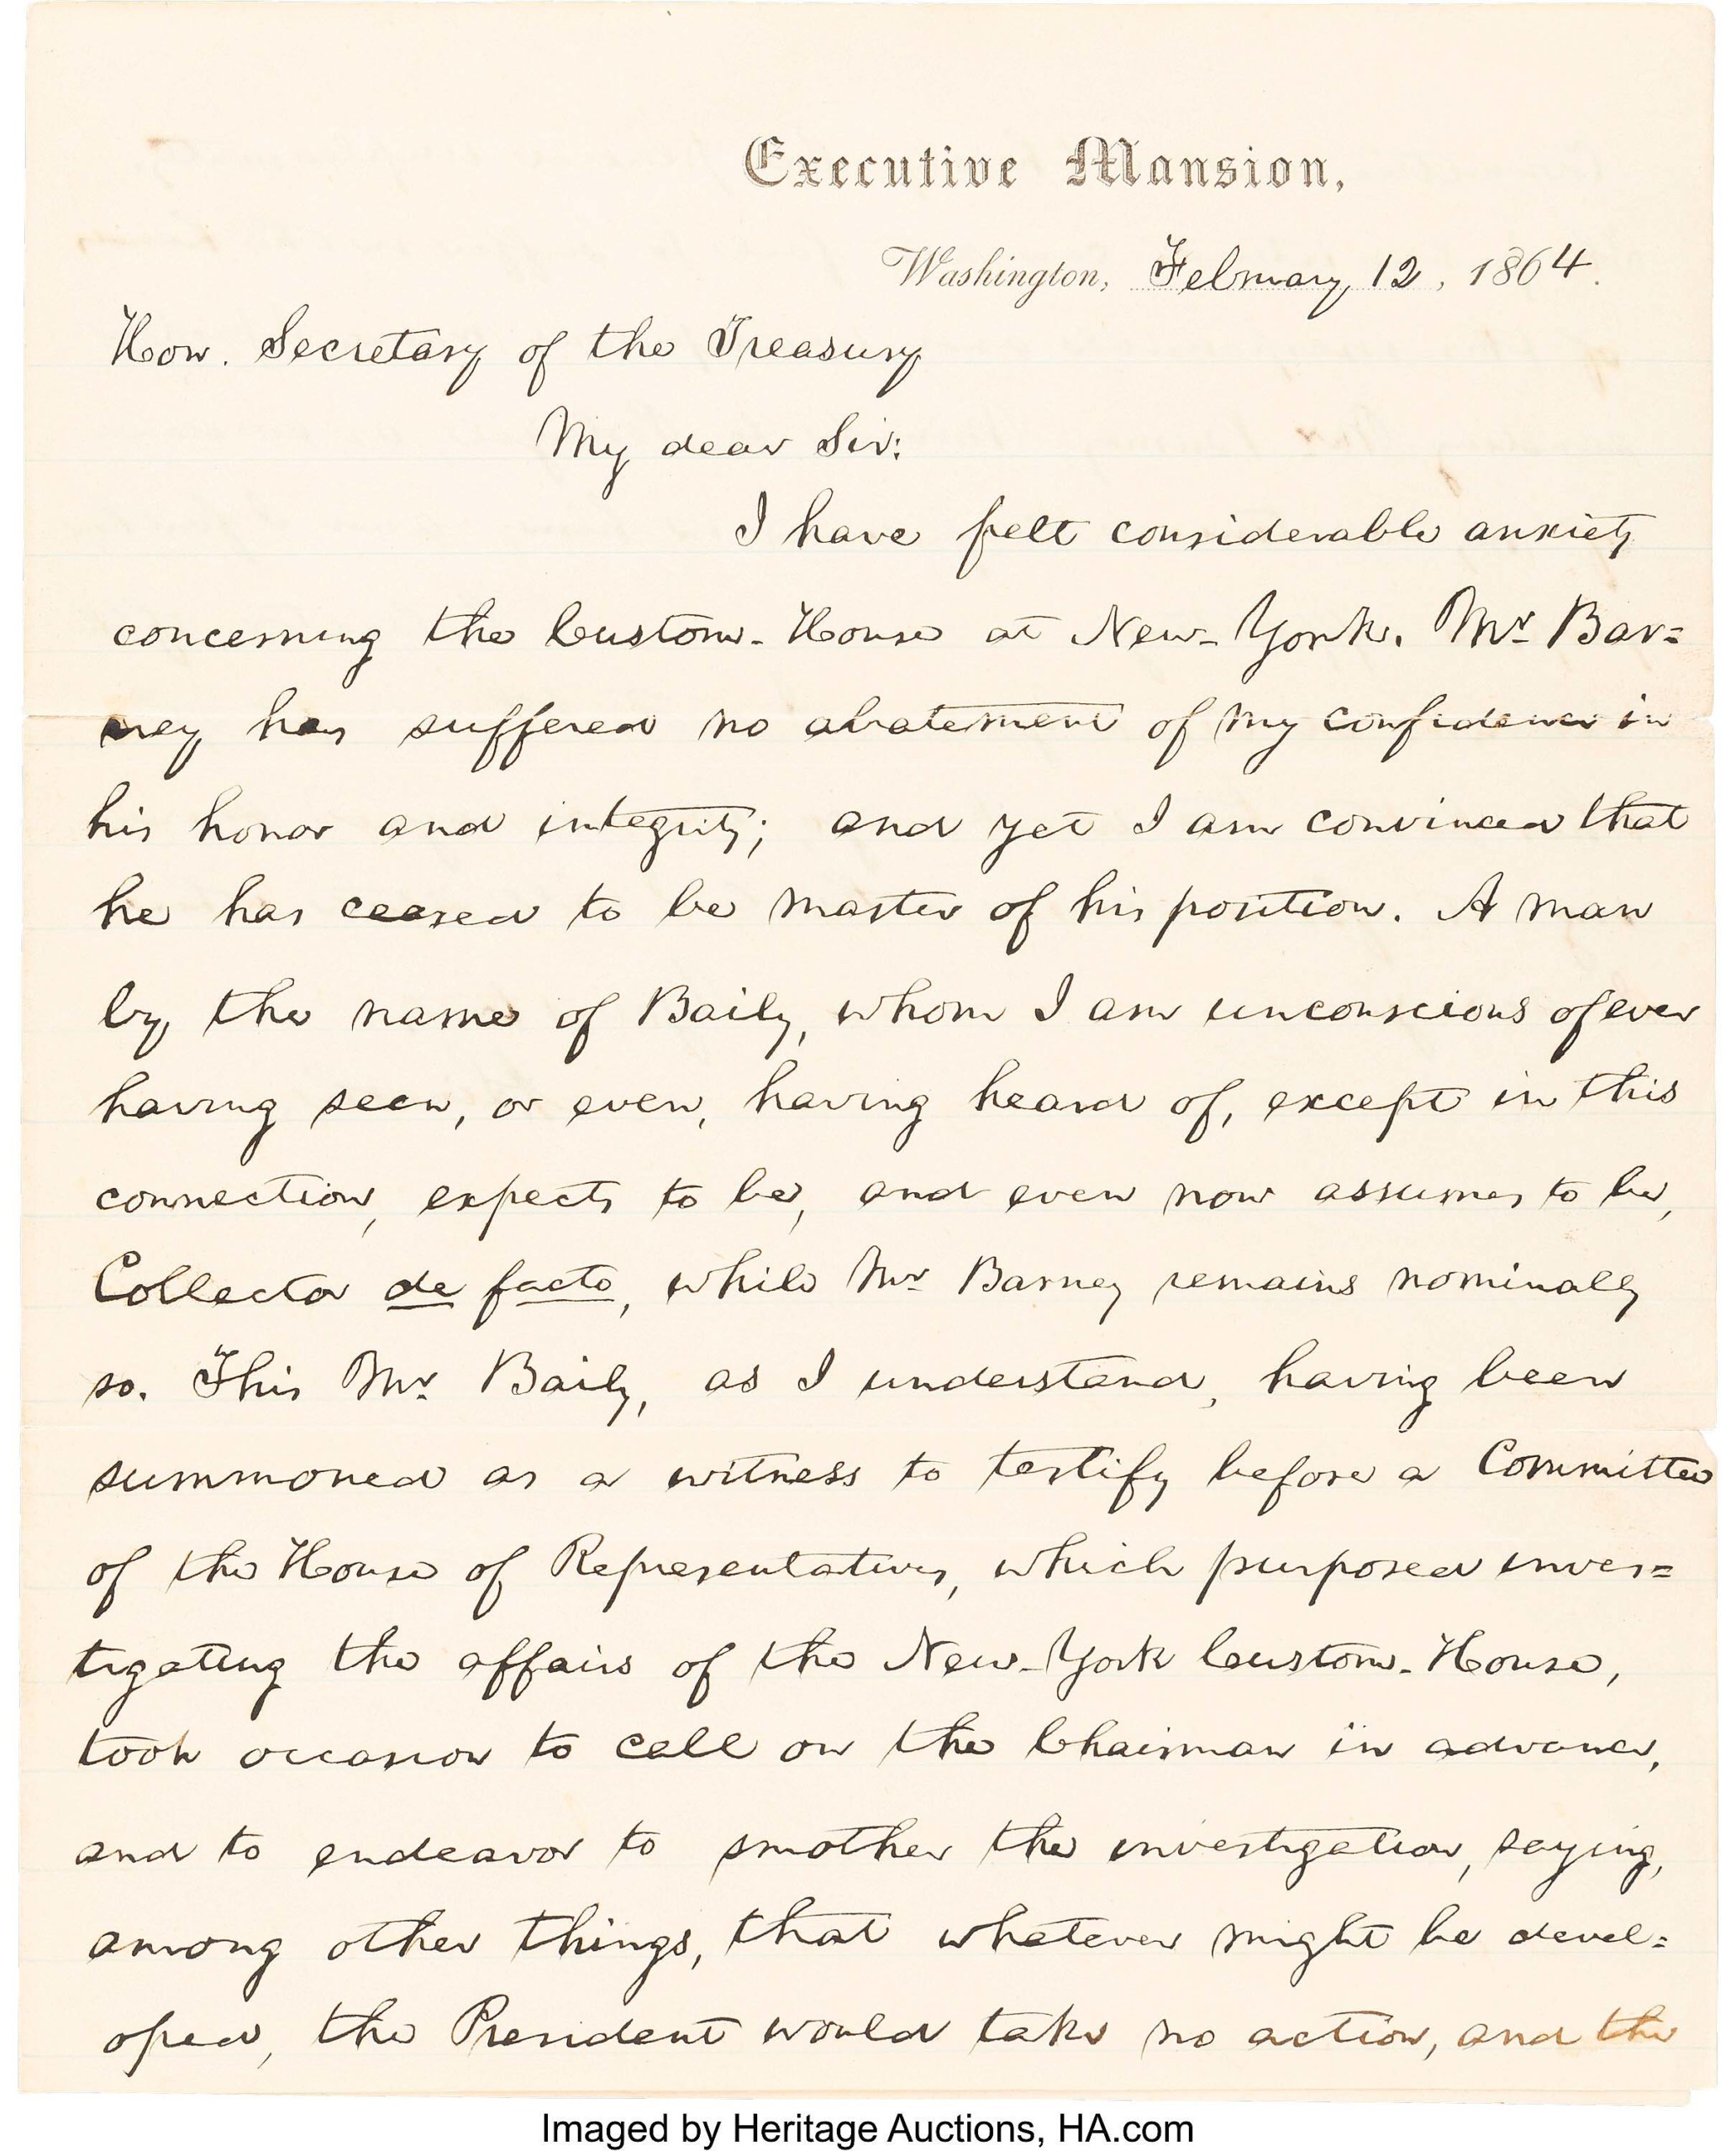 Executive Mansion,
Washington, February 12, 1864.
Hon. Secretary of the Treasury
My dear Sir:
I have felt considerable anxiety
concerning the Custom-House at New-York. Mr. Bar=
ney has suffered no abatement of my confidence in
his honor and integrity; and yet I am convinced that
he has ceased to be master of his position. A man
by the name of Baily, whom I am unconscious of ever
having seen, or even, having heard of, except in this
connection, expects to be, and even now assumes to be,
Collector de facto, while Mr. Barney remains nominally
so. This Mr. Baily, as I understand, having been
summoned as a witness to testify before a Committee
of the House of Representatives, which purposed inves=
tigating the affairs of the New-York Custom-House,
took occasion to call on the Chairman in advance,
and to endeavor to smother the investigation, saying,
among other things, that whatever might be devel=
oped, the President would take no action, and the
Imaged by Heritage Auctions, HA.com